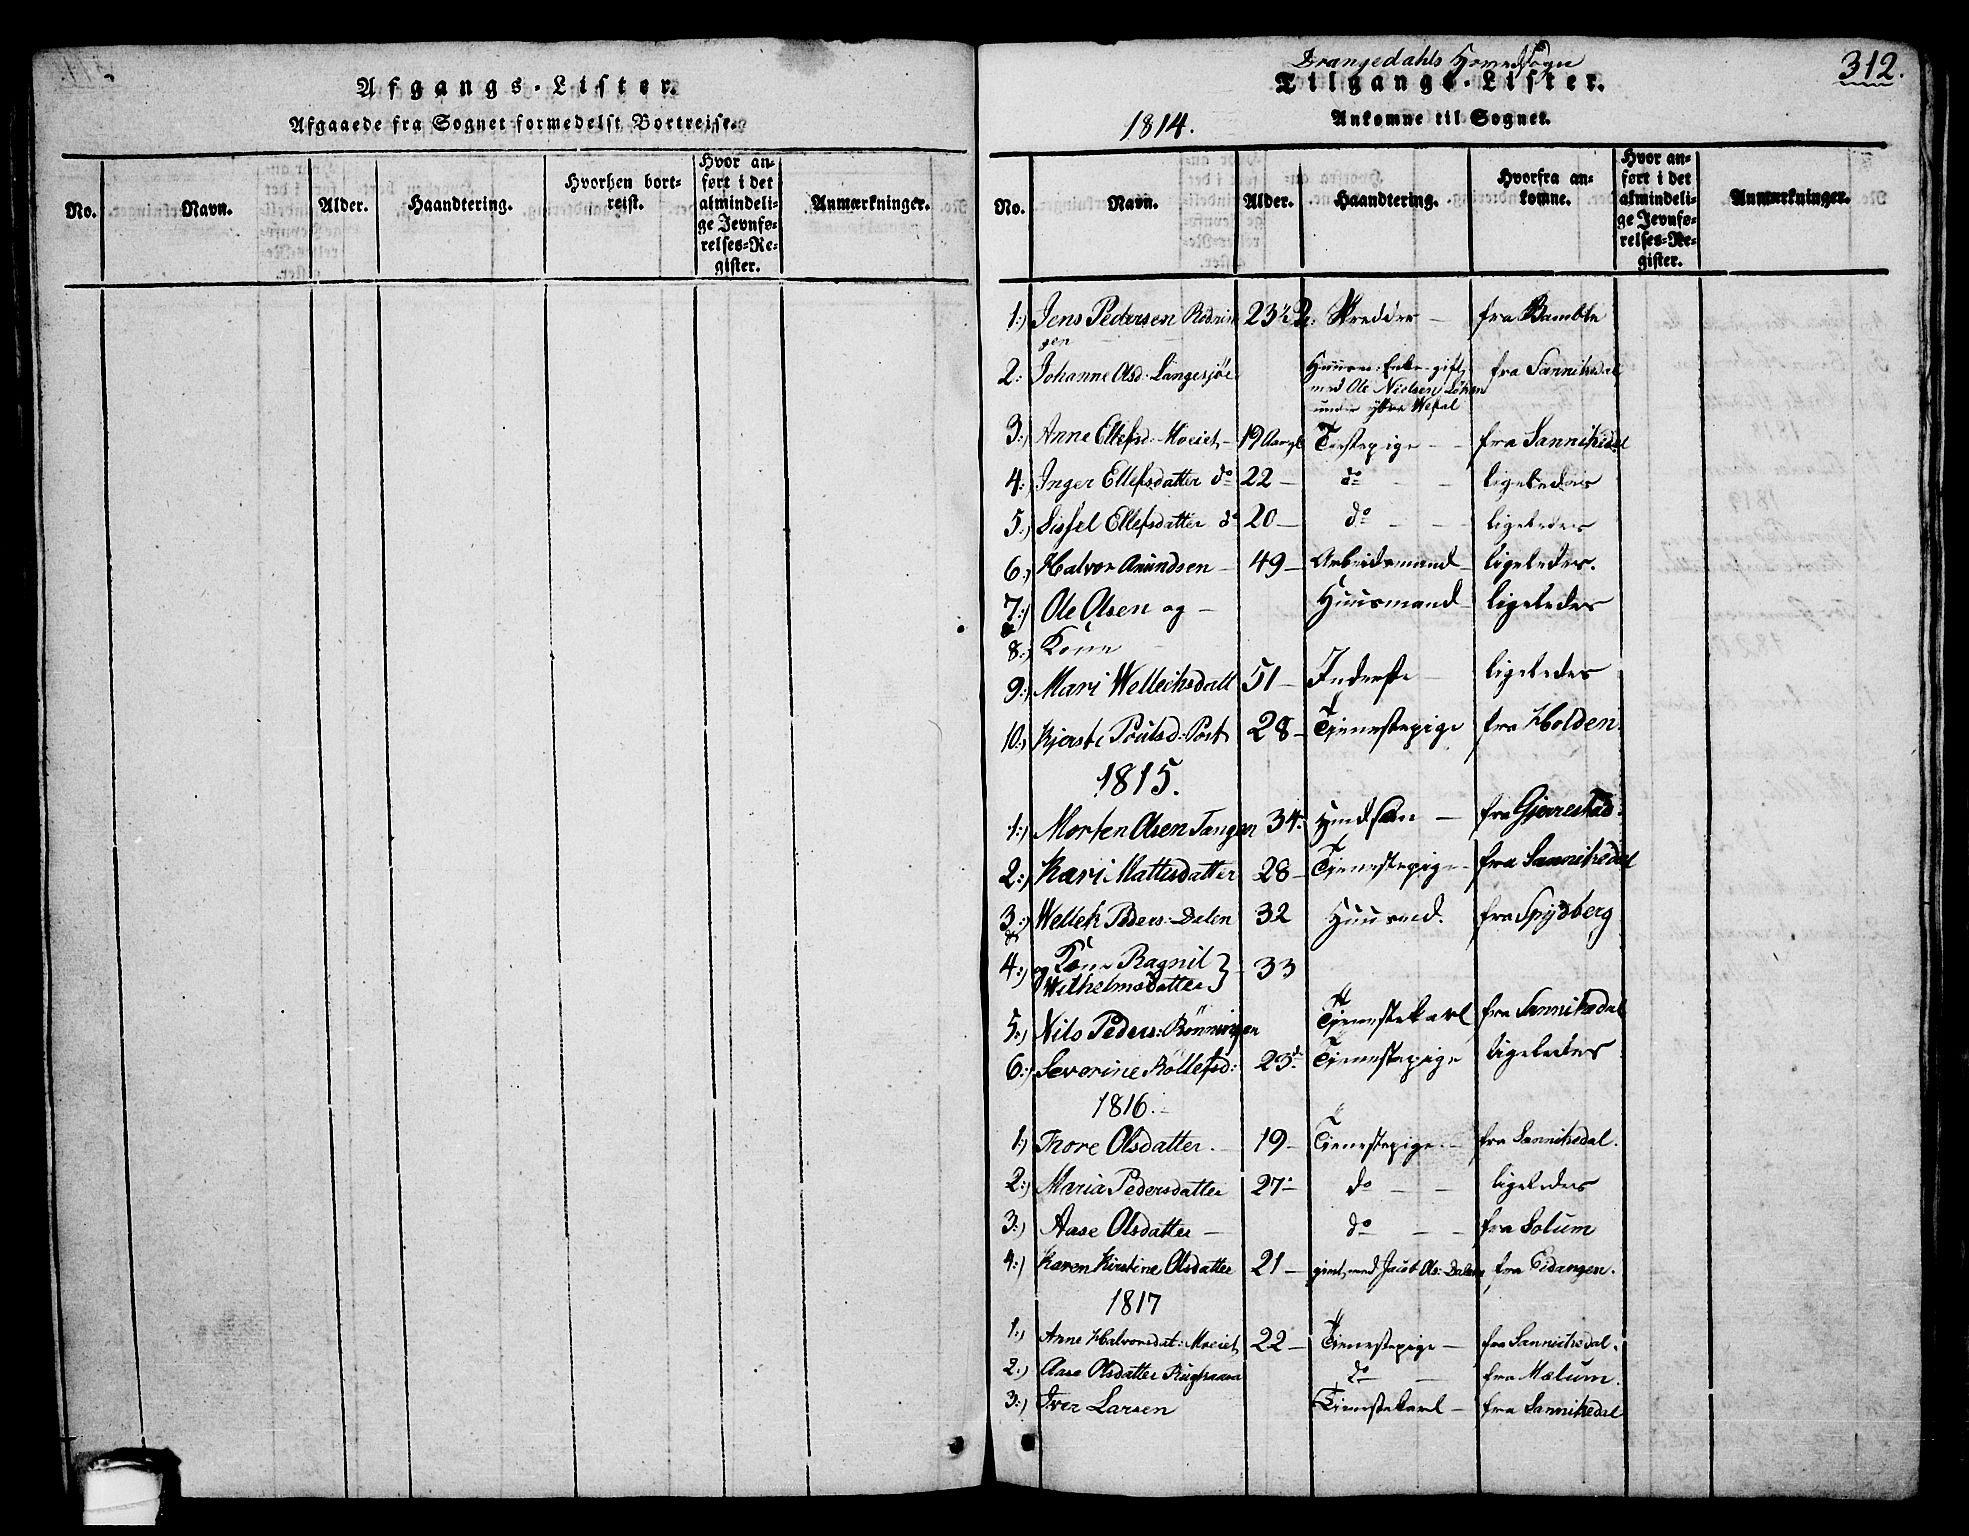 Afgangs-Lister.
Afgaaede fra Sognet formedelst Bortreise.
No. Navn. Alder. Haandtering. Hvorhen bortreist. Hvor anført i det almindelige Jevnførelses-Register. Anmærkninger.
Drangedahls Hovedsogn
312.
Tilgangs-Lister.
1814. Ankomne til Sognet.
No. Navn. Alder. Haandtering. Hvorfra ankomne. Hvor anført i det almindelige Jevnførelses-Register. Anmærkninger.
1.) Jens Pedersen 23½ Skredder – fra Bamble
2: Johanne Olsd: Langesjøe Huusm: Enke gift med Ole Nielsen under ytre fra Sannikedal
3:) Anne Ellefsd: Moeiet – 19 Aar Tienestepige – fra Sannikedal
4:) Inger Ellefsdatter do 22 – do – – ligeledes
5:) Sissel Ellefsdatter do 20 – do – – ligeledes
6:) Halvor Amundsen – 49 – Arbeidsmand – ligeledes.
7:) Ole Olsen og – Huusmand – ligeledes
8:) Kone
9:) Mari Welleiksdatt 51 – Inderste – ligeledes
10:) Kjersti Poulsd: 28 – Tienestepige fra Holden.
1815.
1:) Morten Olsen Tangen 34. – fra Gjerrestad.
2:) Kari Mattisdatter 28 – Tienestepige – fra Sannikedal
3:) Wellek Peders: Dalen 32 Huusmd. fra Spydberg
4:) og Kone Ragnil Wilhelmsdatter } 33
5:) Nils Peders: Rønningen Tjenestekarl fra Sannikedal
6:) Severine Rollefsd: 23 Tienestepige ligeledes
1816.
1:) Thore Olsdatter. – 19 – Tienestepige – fra Sannikedal.
2:) Maria Pedersdatter 27 – do – – ligeledes
3:) Aase Olsdatter – do – – fra Solum
4:) Karen Kirstine Olsdatter 21 – givt med Jacob Ols: Dalen fra Eidangen.
1817
1:) Anne Halvorsdat: Moeiet 22 – Tienestepige – fra Sannikedal.
2:) Aase Olsdatter do – fra Mælum.
3:) Iver Larsen Tienestekarl – fra Sannikedal